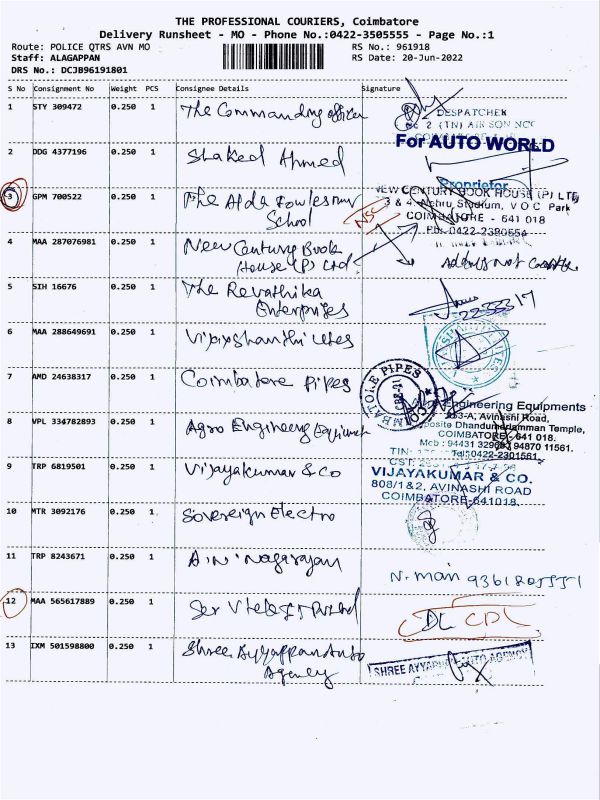 THE PROFESSIONAL COURIERS, Coimbatore
Delivery Runsheet - MO - Phone No.:0422-3505555 - Page No.:1
Route: POLICE QTRS AVN MO
RS No.: 961918
Staff: ALAGAPPAN
RS Date: 20-Jun-2022
DRS No.: DCJB96191801
S No Consignment No Weight PCS Consignee Details Signature
1 STY 309472 0.250 1 The Commanding officer
DESPATCHER
2 (TN) AIR SQN NCC
For AUTO WORLD
2 DDG 4377196 0.250 1 Shaked Ahmed
Proprietor
3 GPM 700522 0.250 1 The
School
NSC
NEW CENTURY BOOK HOUSE (P) LTD
3 & 4, Nehru Stadium, V O C Park
COIMBATORE - 641 018
PH: 0422-2380554
4 MAA 287076981 0.250 1 New Century Book
House (P) Ltd
Address Not
5 SIH 16676 0.250 1 The Revathika
Enterprises
6 MAA 288649691 0.250 1 Vijayshanthi
7 AMD 24638317 0.250 1 Coimbatore Pipes
COIMBATORE PIPES
CBE-21
8 VPL 334782893 0.250 1 Agro Engineering Equipment
Engineering Equipments
Avinashi Road,
Opposite Dhandumariamman Temple,
COIMBATORE - 641 018.
Mob : 94431 94870 11561.
TIN:
Tel: 0422-2301561
CST:
9 TRP 6819501 0.250 1 Vijayakumar & Co
VIJAYAKUMAR & CO.
808/1&2, AVINASHI ROAD
COIMBATORE-641018.
10 MTR 3092176 0.250 1 Sovereign Electro
11 TRP 8243671 0.250 1 A.N. Nagarajan
N. Mani
12 MAA 565617889 0.250 1
DL CDL
13 IXM 501598800 0.250 1 Shree Ayyappan Auto
Agency
SHREE AYYAPPAN AUTO AGENCY